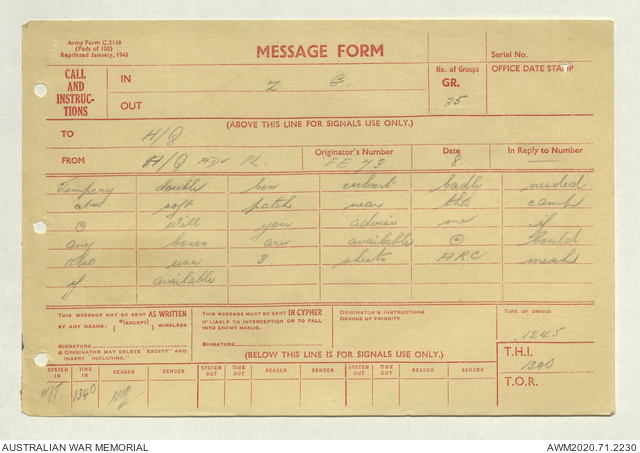 Army Form C.2130
(Pads of 100)
Reprinted January, 1943
MESSAGE FORM
Serial No.
CALL AND INSTRUC-TIONS
IN
Z G.
No. of Groups
GR.
35
OFFICE DATE STAMP
OUT
(ABOVE THIS LINE FOR SIGNALS USE ONLY.)
TO H/Q
FROM H/Q ADV PL
Originator's Number
FE 73
Date
8
In Reply to Number
Tempory double box culvert badly needed
at soft patch near bth camp
will you advise me if
any boxes are available could
also use 3 sheets ARC mesh
if available
THIS MESSAGE MAY BE SENT AS WRITTEN
BY ANY MEANS. (*(EXCEPT) ) WIRELESS
SIGNATURE
ORIGINATOR MAY DELETE "EXCEPT" AND
INSERT "INCLUDING."
THIS MESSAGE MUST BE SENT IN CYPHER
IF LIABLE TO INTERCEPTION OR TO FALL
INTO ENEMY HANDS.
SIGNATURE
ORIGINATOR'S INSTRUCTIONS
DEGREE OF PRIORITY
TIME OF ORIGIN
1245
(BELOW THIS LINE IS FOR SIGNALS USE ONLY.)
T.H.I.
1300
T.O.R.
SYSTEM IN TIME IN READER SENDER SYSTEM OUT TIME OUT READER SENDER SYSTEM OUT TIME OUT READER SENDER
W/T 1340
AUSTRALIAN WAR MEMORIAL
AWM2020.71.2230